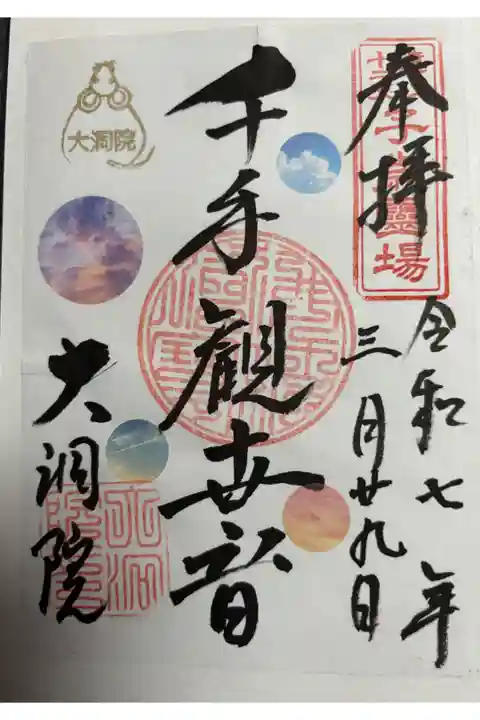 奉拝
令和七年
三月廿九日
千手観世音
大洞院
大洞院